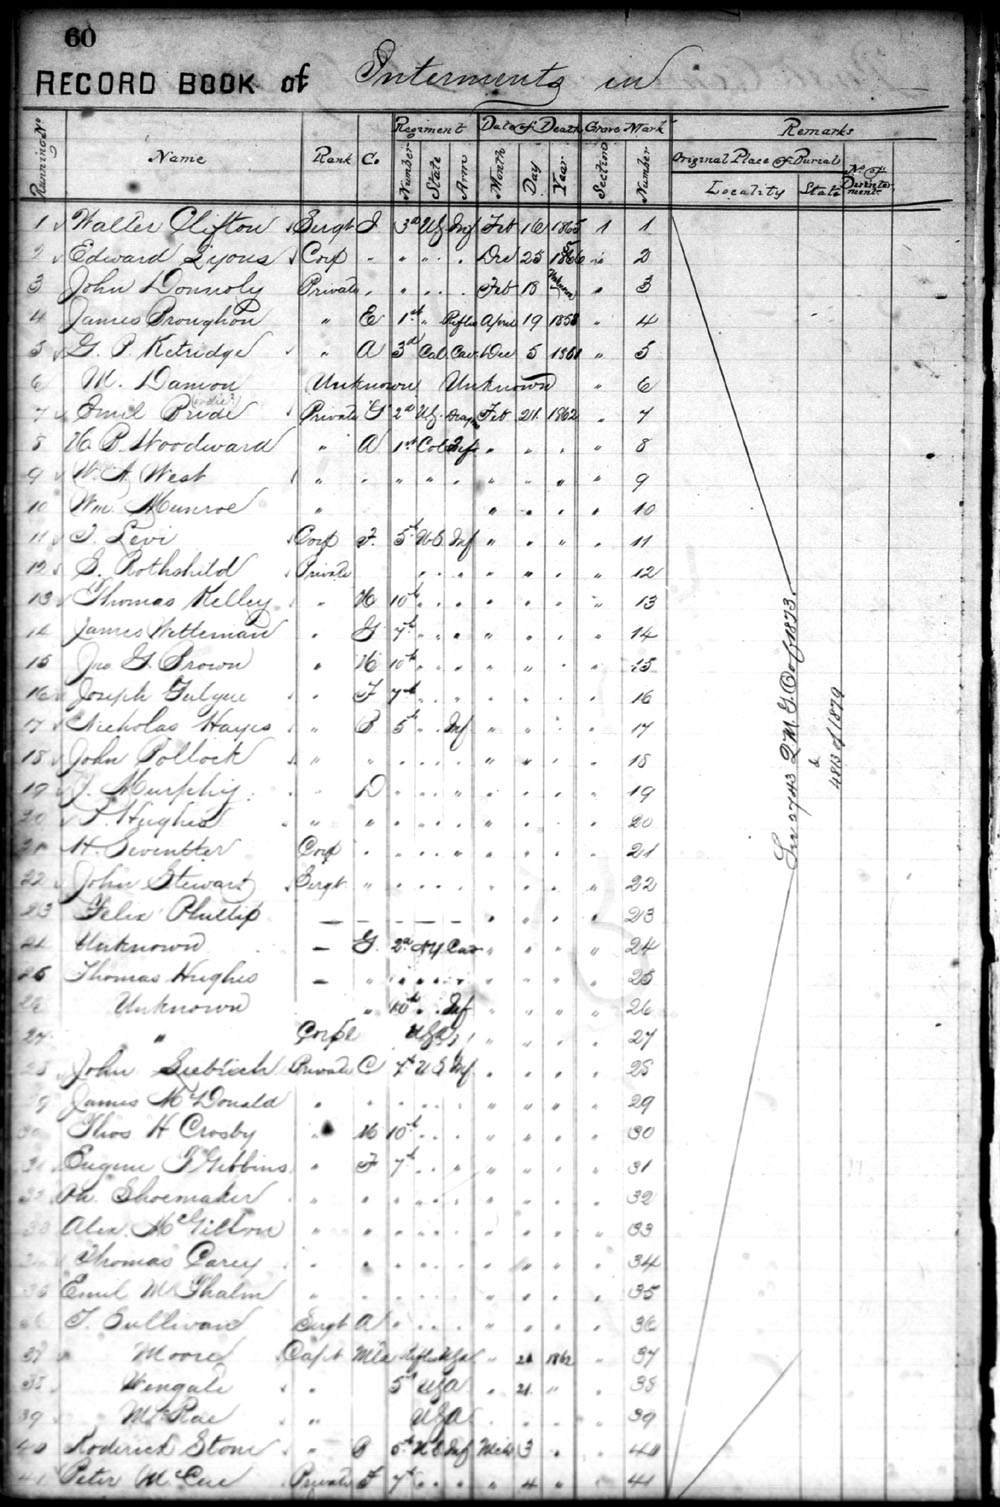 60
RECORD BOOK of Interments in
Running No. Name Rank Co. Regiment Date of Death Grave Mark Remarks
Number State Arm Month Day Year Section Number Original Place of Burial No. of Disinterment.
Locality State
1 Walter Clifton Sergt I 3d US Inf Feb 16 1865 1 1
2 Edward Lyons Corp " " " . Dec 25 " 2
3 John Donnoly Private " " . . Feb 13 Unknown " 3
4 James Broughon " E 1st " Rifles April 19 1858 " 4
5 G. P. Ketridge " A 3d Cal Cav Dec 5 1861 " 5
6 M. Damon Unknown Unknown " 6
7 Emil Pride Private G 2d US. Drag Feb 21 1862 " 7
8 H. B. Woodward " A 1st Col Inf " " " " 8
9 W. A. West " " " " " " " " " 9
10 Wm. Munroe " " " " " 10
11 I. Levi Corp F. 5th U.S. Inf " " " " 11
12 S. Rothshild Private . . . " " " " 12
13 Thomas Kelley " H 10th . . . " " " " 13
14 James Witteman " G 7th " . " " " . " 14
15 Jno G. Brown " H 10th . . . " " . " 15
16 Joseph F 7th " . . " " " " 16
17 Nicholas Hayes " B 5th . . Inf " " " " 17
18 John Pollock " " . . . . " " . " 18
19 J. Murphy " D " " . " " " . " 19
20 T. Hughes " " " . . . " " " " 20
21 H. Corp " . . . " " " " " 21
22 John Stewart Sergt " " . . . " " " " 22
23 Felix Phillip — — — — — " " " " 23
24 Unknown — G. 2d NY Cav " " " " 24
25 Thomas Hughes — " " " " " " " " " 25
26 Unknown " 10th . Inf " " " " 26
27 " Corpl USA " " " " 27
28 John Private C 7th U S Inf " " " " 28
29 James McDonald " " " . . " " " " 29
30 Thos H Crosby " H 10th . . " " " " 30
31 Eugene F Gibbins " F 7th . . " " " " " 31
32 Shoemaker " " " . . " " " " 32
33 Alex McGillon " " " . . " " " " 33
34 Thomas Carey " . " . . . " " " " 34
35 Emil " " " . . . " " " " 35
36 T. Sullivan Sergt A " . . . " " " " 36
37 Moore Capt " 21 1862 " 37
38 Wengate " 5th USA " 21 " " 38
39 McRae " USA " " " 39
40 Roderick Stone " 5th U.S Inf Mch 3 " " 40
41 Peter McCue Private F 7th . . . " 4 " " 41
See 2743 Q.M.G.O. of 1873.
&
4813 of 1879